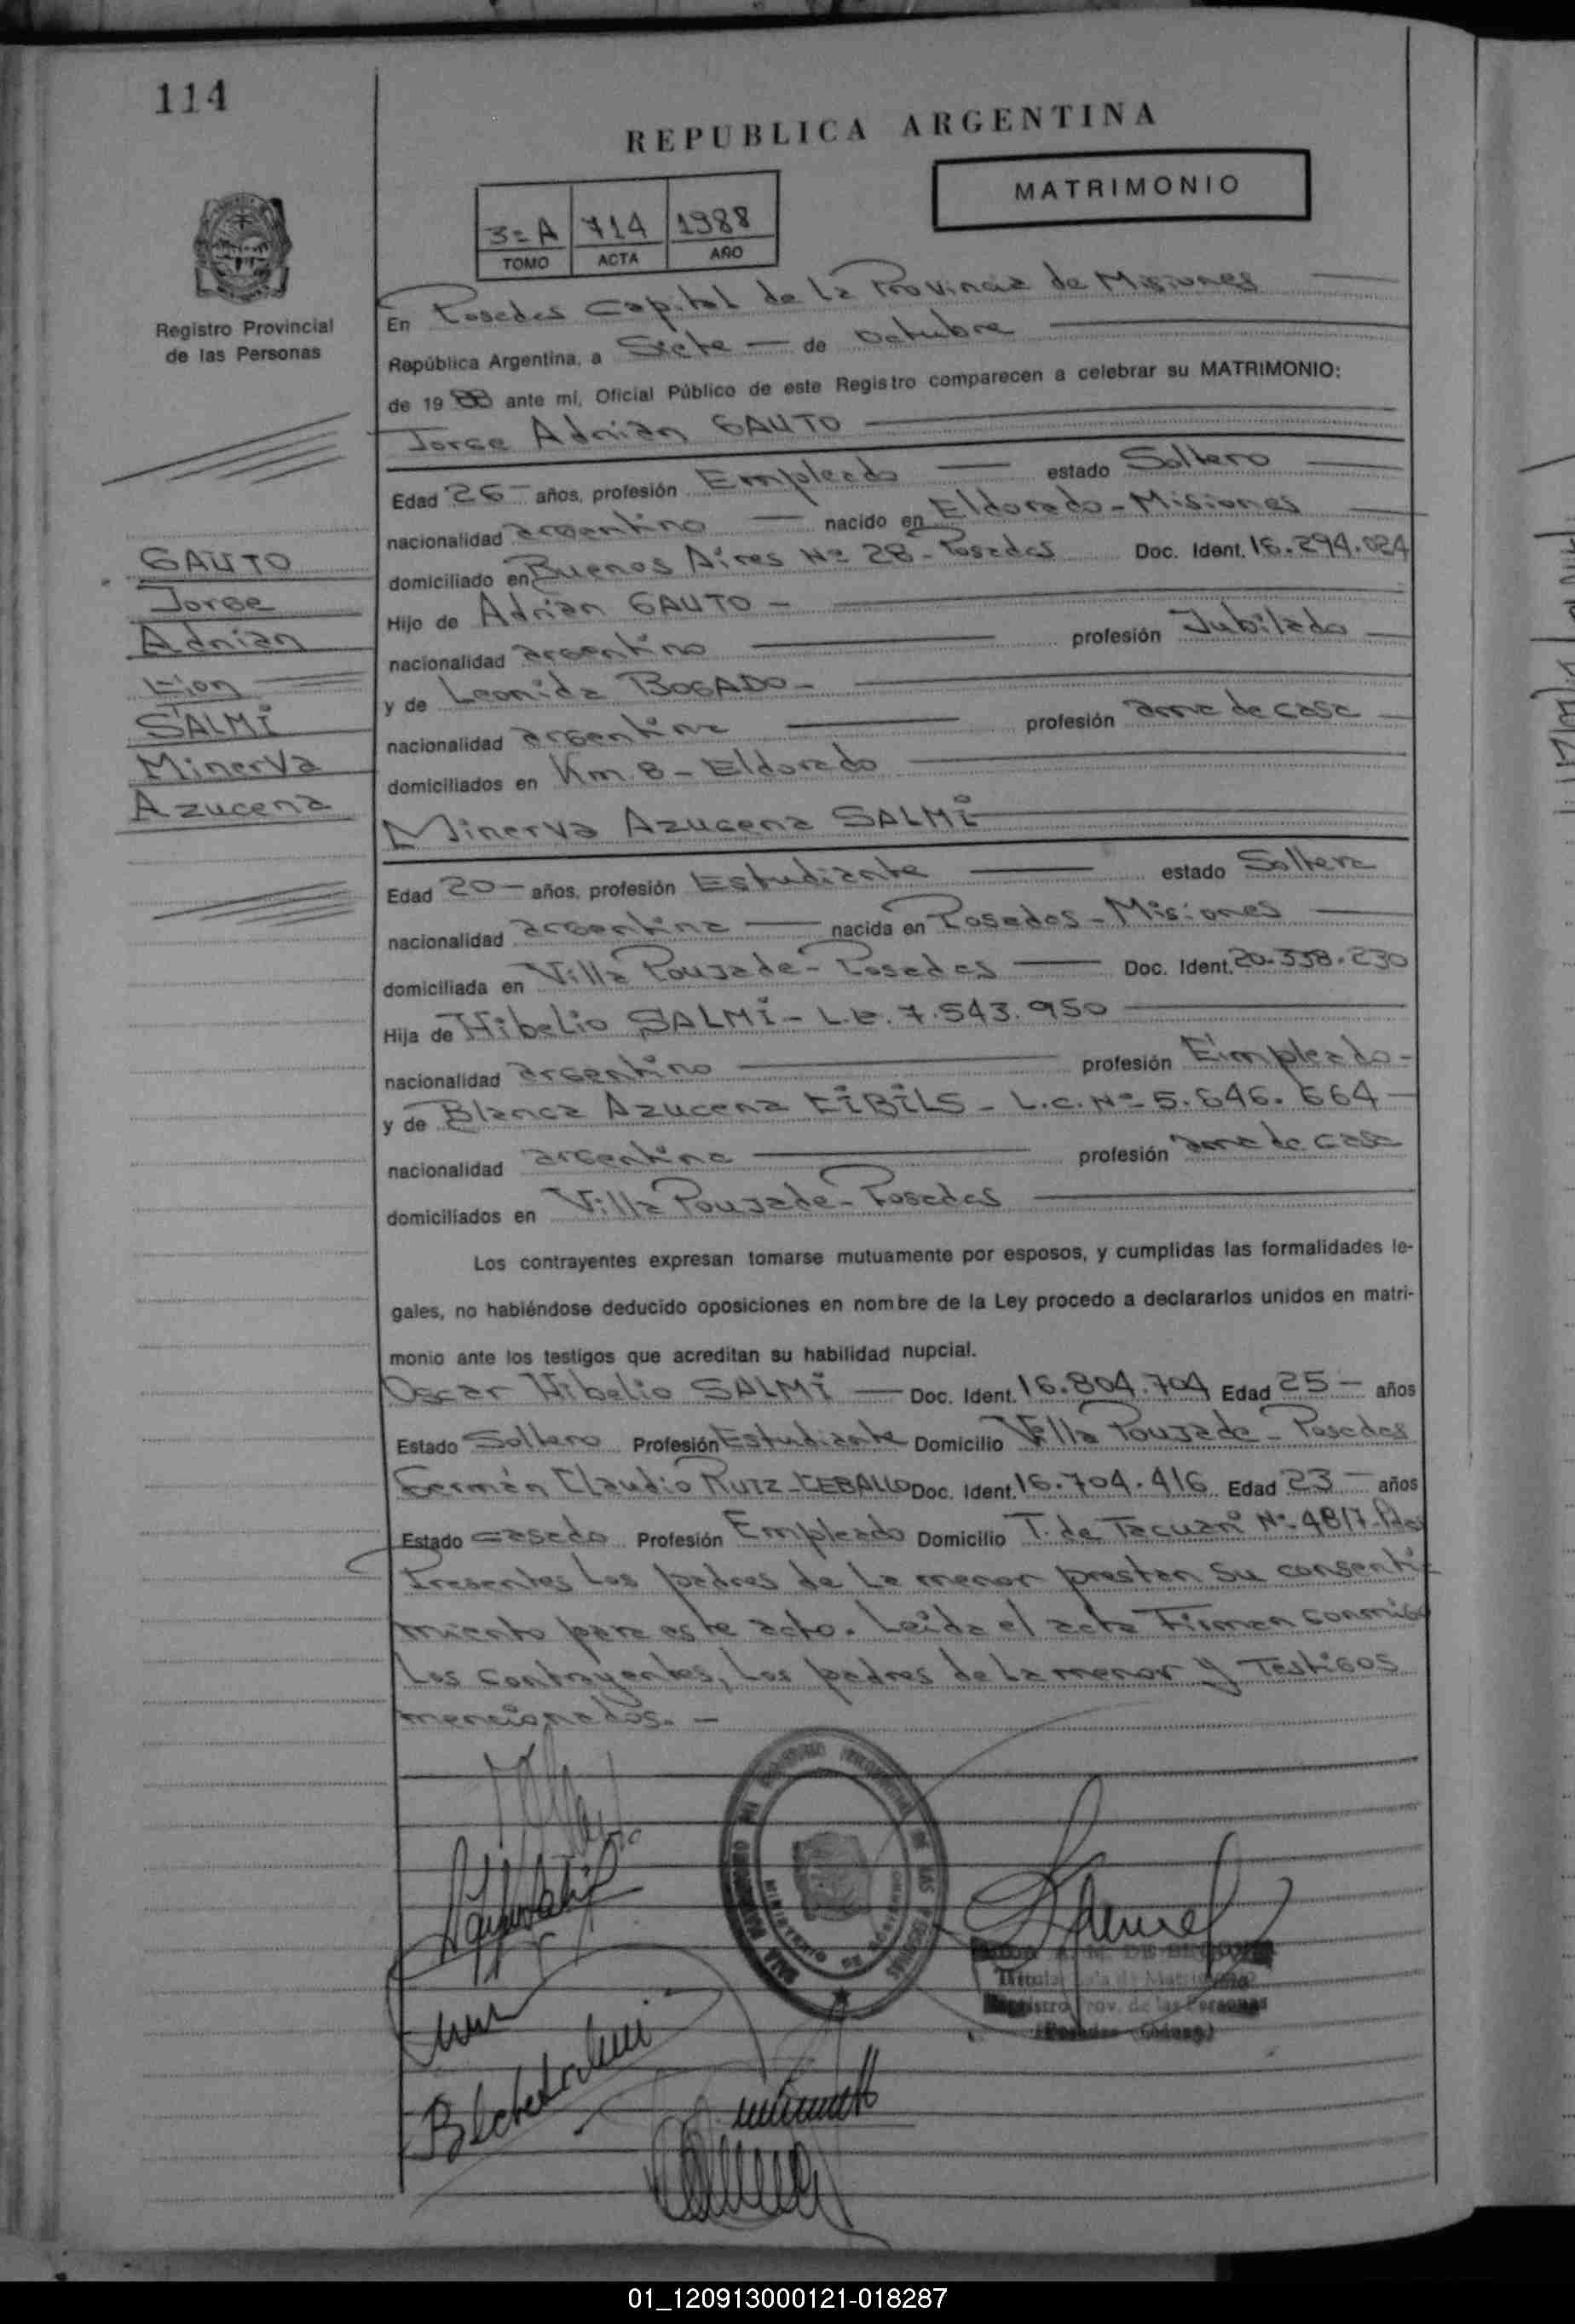 114
REPUBLICA ARGENTINA
MATRIMONIO
3=A 714 1988
TOMO ACTA AÑO
Registro Provincial
de las Personas
En Posadas Capital de la Provincia de Misiones
República Argentina, a Siete — de octubre
de 1988 ante mí, Oficial Público de este Registro comparecen a celebrar su MATRIMONIO:
Jorge Adrián GAUTO
Edad 26 — años, profesión Empleado — estado Soltero
nacionalidad argentino — nacido en Eldorado - Misiones
domiciliado en Buenos Aires Nº 28 - Posadas Doc. Ident. 16.294.024
Hijo de Adrián GAUTO -
nacionalidad argentino profesión Jubilado
y de Leonida BOGADO -
nacionalidad argentina profesión ama de casa
domiciliados en Km. 8 - Eldorado
Minerva Azucena SALMi
GAUTO
Jorge
Adrián
con
SALMi
Minerva
Azucena
Edad 20 — años, profesión Estudiante estado Soltera
nacionalidad argentina — nacida en Posadas - Misiones
domiciliada en Villa Poujade - Posadas — Doc. Ident. 20.338.230
Hija de Hibelio SALMi - L.E. 7.543.950
nacionalidad argentino profesión Empleado -
y de Blanca Azucena CiBiLS - L.C. Nº 5.646.664
nacionalidad argentina profesión ama de casa
domiciliados en Villa Poujade - Posadas
Los contrayentes expresan tomarse mutuamente por esposos, y cumplidas las formalidades le-
gales, no habiéndose deducido oposiciones en nombre de la Ley procedo a declararlos unidos en matri-
monio ante los testigos que acreditan su habilidad nupcial.
Oscar Hibelio SALMi — Doc. Ident. 16.804.704 Edad 25 — años
Estado Soltero Profesión Estudiante Domicilio Villa Poujade - Posadas
Germán Claudio RUIZ-CEBALLO Doc. Ident. 16.704.416 Edad 23 — años
Estado casado Profesión Empleado Domicilio T. de Tacuarí Nº 4817-Pdas
Presentes los padres de la menor prestan su consenti-
miento para este acto. Leída el acta Firman conmigo
los contrayentes, los padres de la menor y Testigos
mencionados. -
MINISTERIO DE GOBIERNO
Titular Sala de Matrimonio
Registro Prov. de las Personas
01_120913000121-018287